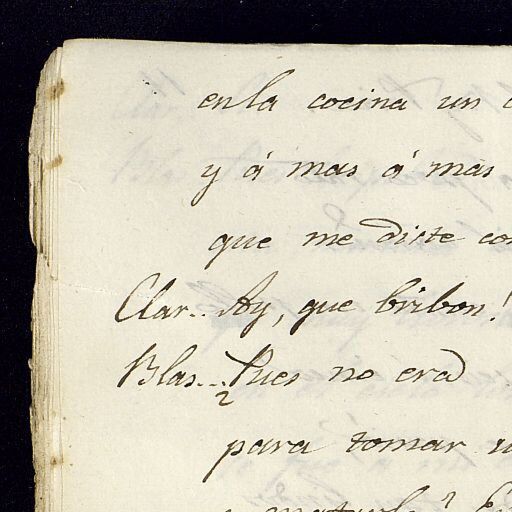 enla cocina un
y á mas á mas
que me diste con
Clar.. Ay, que bribon!
Blas... Pues no era
para tomar